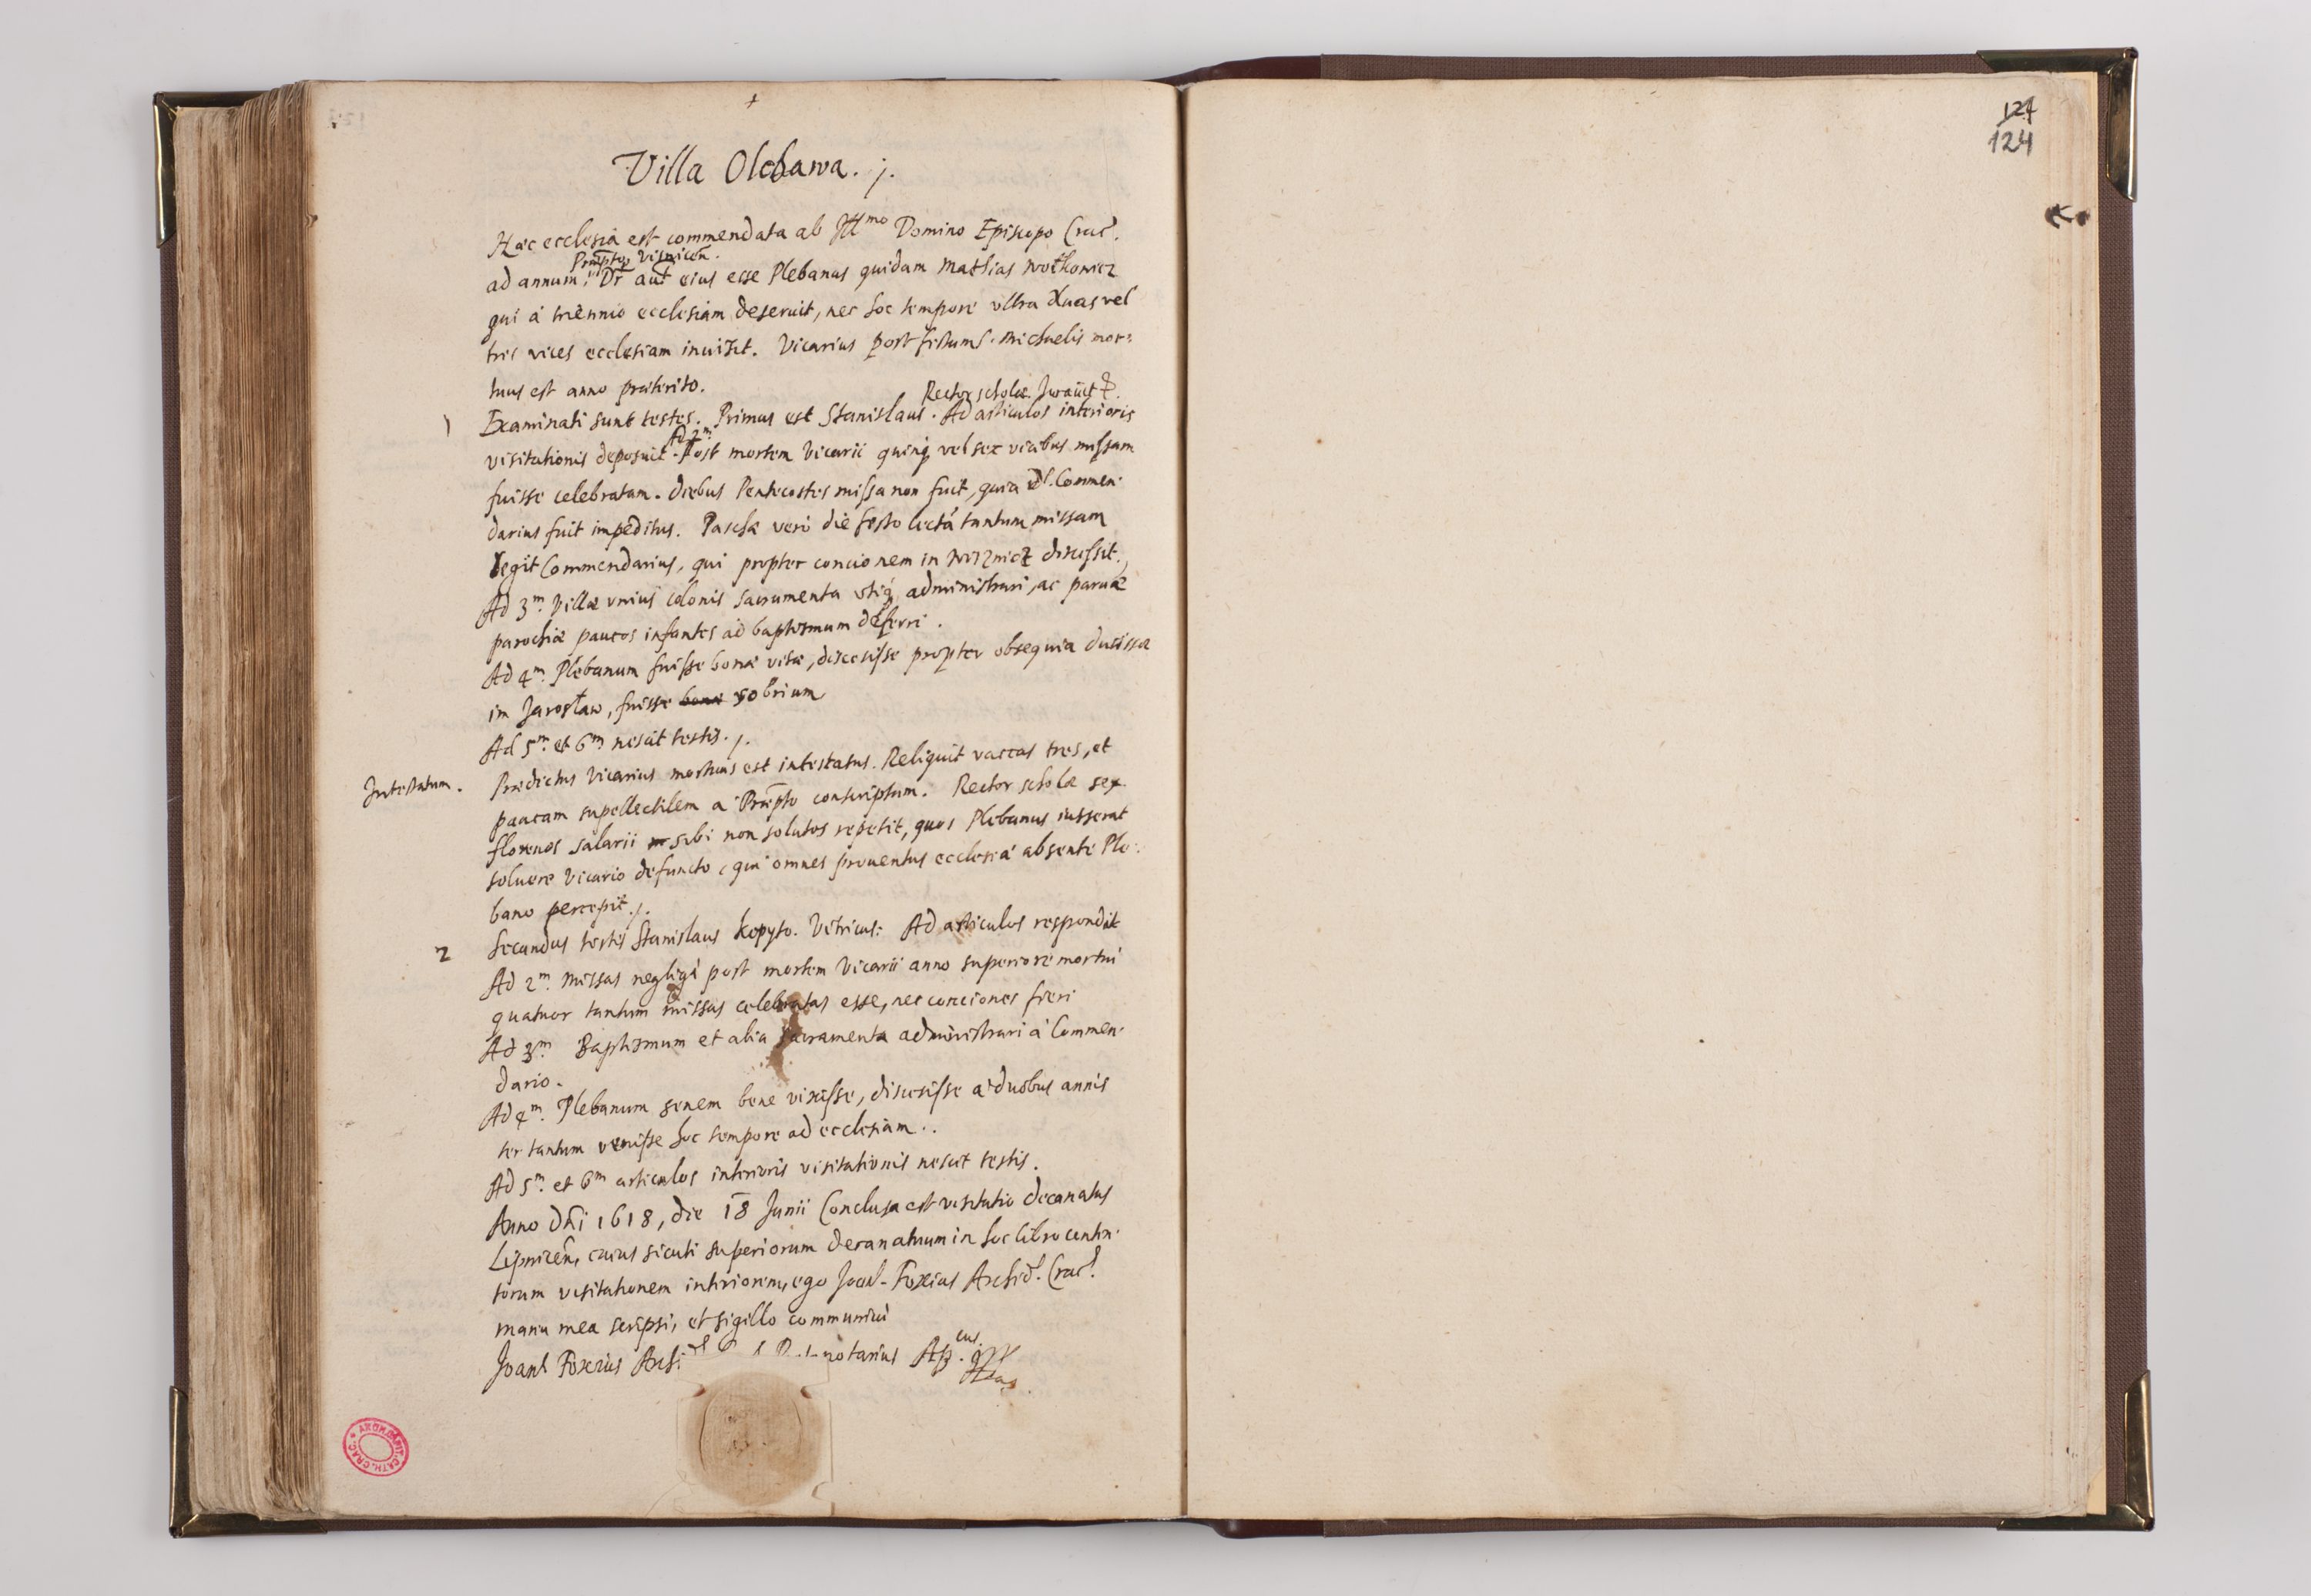 124
124
Villa Olchawa. j.
Hæc ecclesia est commendata ab Ill^mo Domino Episcopo Crac.
Præpto Visnicen.
ad annum. Dr aut eius esse Plebanus quidam Mathias
qui à triennio ecclesiam deseruit, nec hoc tempore ultra duas vel
tres vices ecclesiam inuisit. Vicarius post festum S. Michaelis mor:
tuus est anno præterito.
Rector scholæ. Jurauit
1 Examinati sunt testes. Primus est Stanislaus. Ad articulos interioris
Ad 2^m.
visitationis deposuit. Post mortem Vicarii quinq vel sex vicibus missam
fuisse celebratam. diebus Pentecostes missa non fuit, quia d. Commen-
darius fuit impeditus. Paschæ verò die festo lectá tantum missam
legit Commendarius, qui propter concionem in Wisznicz discessit.
Ad 3^m. Villæ unius colonis sacramenta utiq administrari, ac paruæ
parochiæ paucos infantes ad baptismum deferri.
Ad 4^m. Plebanum fuisse bonæ vitæ, discessisse propter obsequia ducissæ
in Jarosław, fuisse bonæ sobrium
Ad 5^m. et 6^m nescit testis. j.
Intestatum. Prædictus Vicarius mortuus est intestatus. Reliquit vaccas tres, et
paucam supellectilem a Præpto conscriptam. Rector scholæ sex
florenos salarii sibi non solutos repetit, quos Plebanus iusserat
soluere Vicario defuncto, qui omnes prouentus ecclesiæ absente Ple-
bano percepit. j.
2 Secundus testis Stanislaus Kopyto. Vitricus: Ad articulos respondit
Ad 2^m. Missas negligi post mortem Vicarii anno superiore mortui
quatuor tantum missas celebratas esse, nec conciones fieri
Ad 3^m. Baptismum et alia sacramenta administrari à Commen-
dario.
Ad 4^m. Plebanum senem bene vixisse, discessisse a duobus annis
ter tantum venisse hoc tempore ad ecclesiam..
Ad 5^m. et 6^m articulos interioris visitationis nescit testis.
Anno Dñi 1618, die 18 Junii Conclusa est visitatio decanatus
Lipnicen, cuius sicuti superiorum decanatuum in hoc libro conten-
torum visitationem interiorem, ego Joan. Foxius Archid. Crac.
manu mea scripsi, et sigillo communiui
Joan Foxius Archid notarius
ARCHI CAPIT. CATH. CRAC.